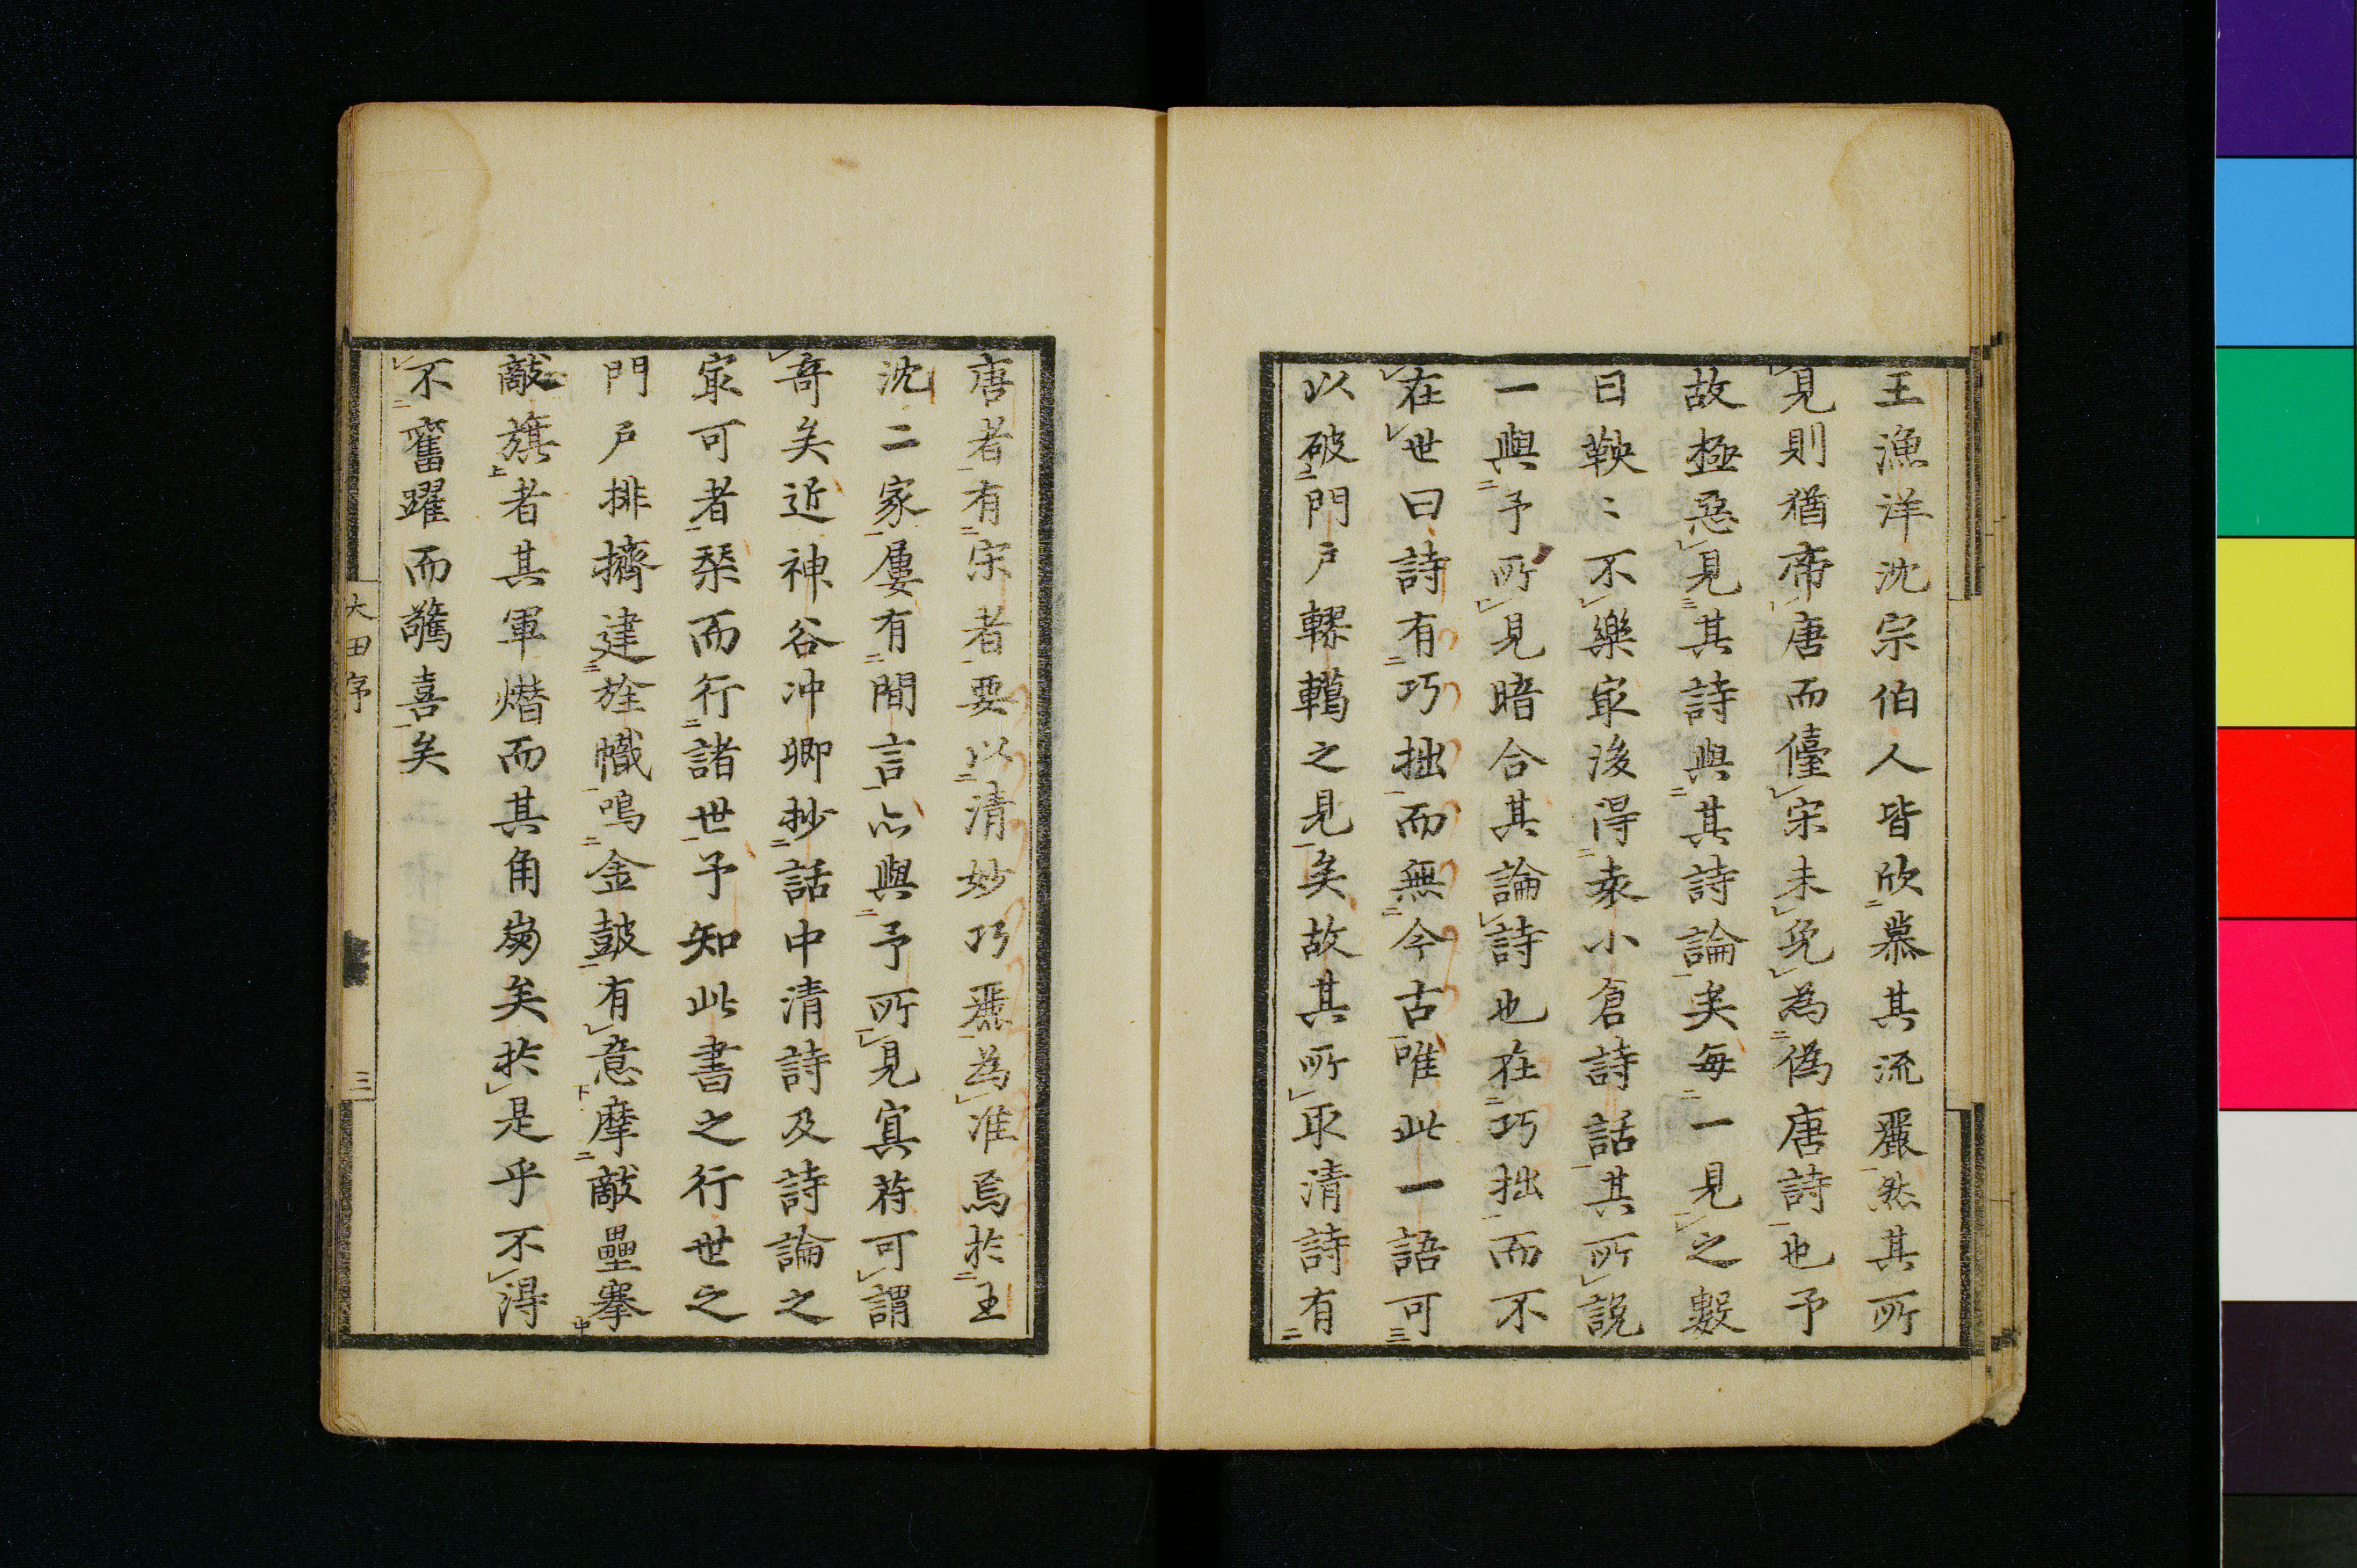 王漁洋沈宗伯人皆欣慕其流麗然其所
見則猶帝唐而儓宋未免為偽唐詩也予
故極惡見其詩與其詩論矣每一見之數
日鞅〻不樂㝡後得袁小倉詩話其所說
一與予所見暗合其論詩也在巧拙而不
在世曰詩有巧拙而無今古唯此一語可
以破門戶轇轕之見矣故其所取清詩有
唐者有宋者要以清妙巧麗為准焉於王
沈二家屢有間言亦與予所見寘符可謂
奇矣近神谷冲卿抄話中清詩及詩論之
㝡可者棨而行諸世予知此書之行世之
門戶排擠建旌幟鳴金鼓有意摩敵壘搴
敵旗者其軍熸而其角崩矣於是乎不得
不奮躍而驚喜矣
大田序
三